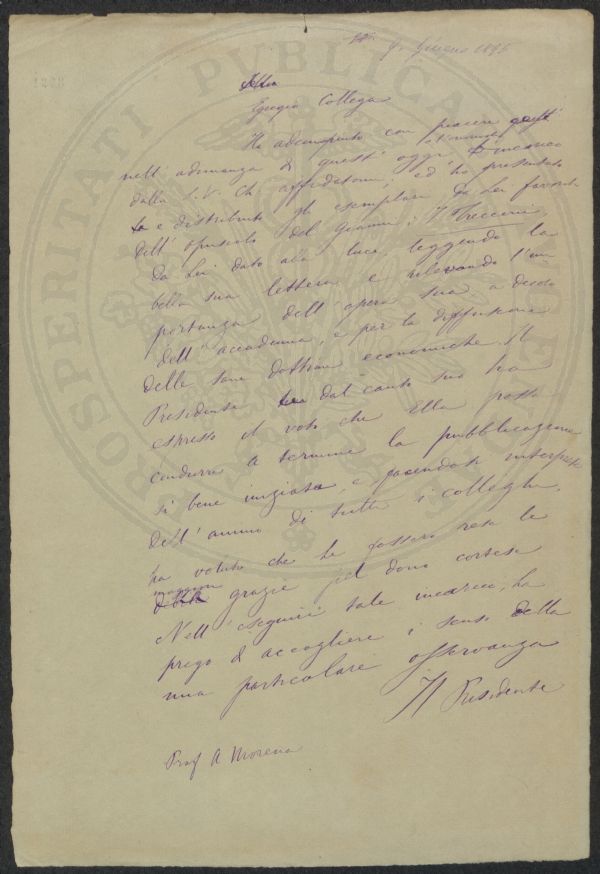 9. Giugno 1896
Egregio Collega
Ho adempiuto con piacere
nell'adunanza di quest'oggi, l'incarico
dalla S. V. affidatomi, ed ho presentato
e distribuito gli esemplari da Lei favoriti
dell'opuscolo del Gianni,
da Lei dato alla luce, leggendo la
bella sua lettera e rilevando l'im
portanza dell'opera sua a decoro
dell'accademia, e per la diffusione
delle sane dottrine economiche. Il
Presidente dal canto suo ha
espresso il voto che Ella possa
condurre a termine la pubblicazione
sì bene iniziata, e facendosi interprete
dell'animo di tutti i colleghi,
ha voluto che le fossero rese le
maggiori grazie pel dono cortese
Nell'eseguire tale incarico, La
prego di accogliere i sensi della
mia particolare osservanza
Il Presidente
Prof A Morena
PROSPERITATI PUBLICAE